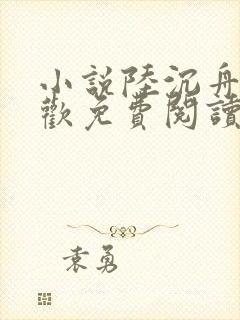 小說陸沉舟
歡免費閱讀
袁勇